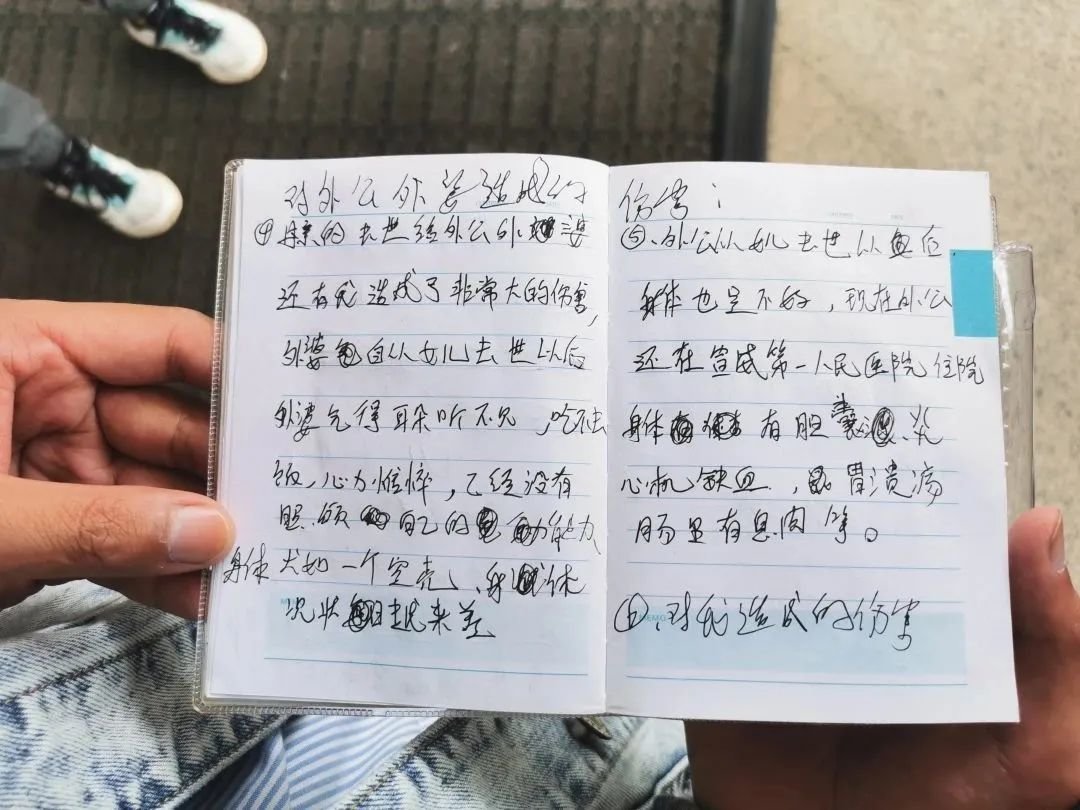 对外公外婆造成的
④母亲的去世给外公外婆
还有我造成了非常大的伤害,
外婆自从女儿去世以后
外婆气得耳朵听不见,吃不去
饭、心力憔悴,已经没有
照顾自己的能力
身体犹如一个空壳、身体
况状越来差
伤害:
⑤、外公从女儿去世以后
身体也是不好,现在外公
还在宣威第一人民医院住院
身体有胆囊炎
心机缺血,胃溃疡
肠里有息肉等。
、对我造成的伤害